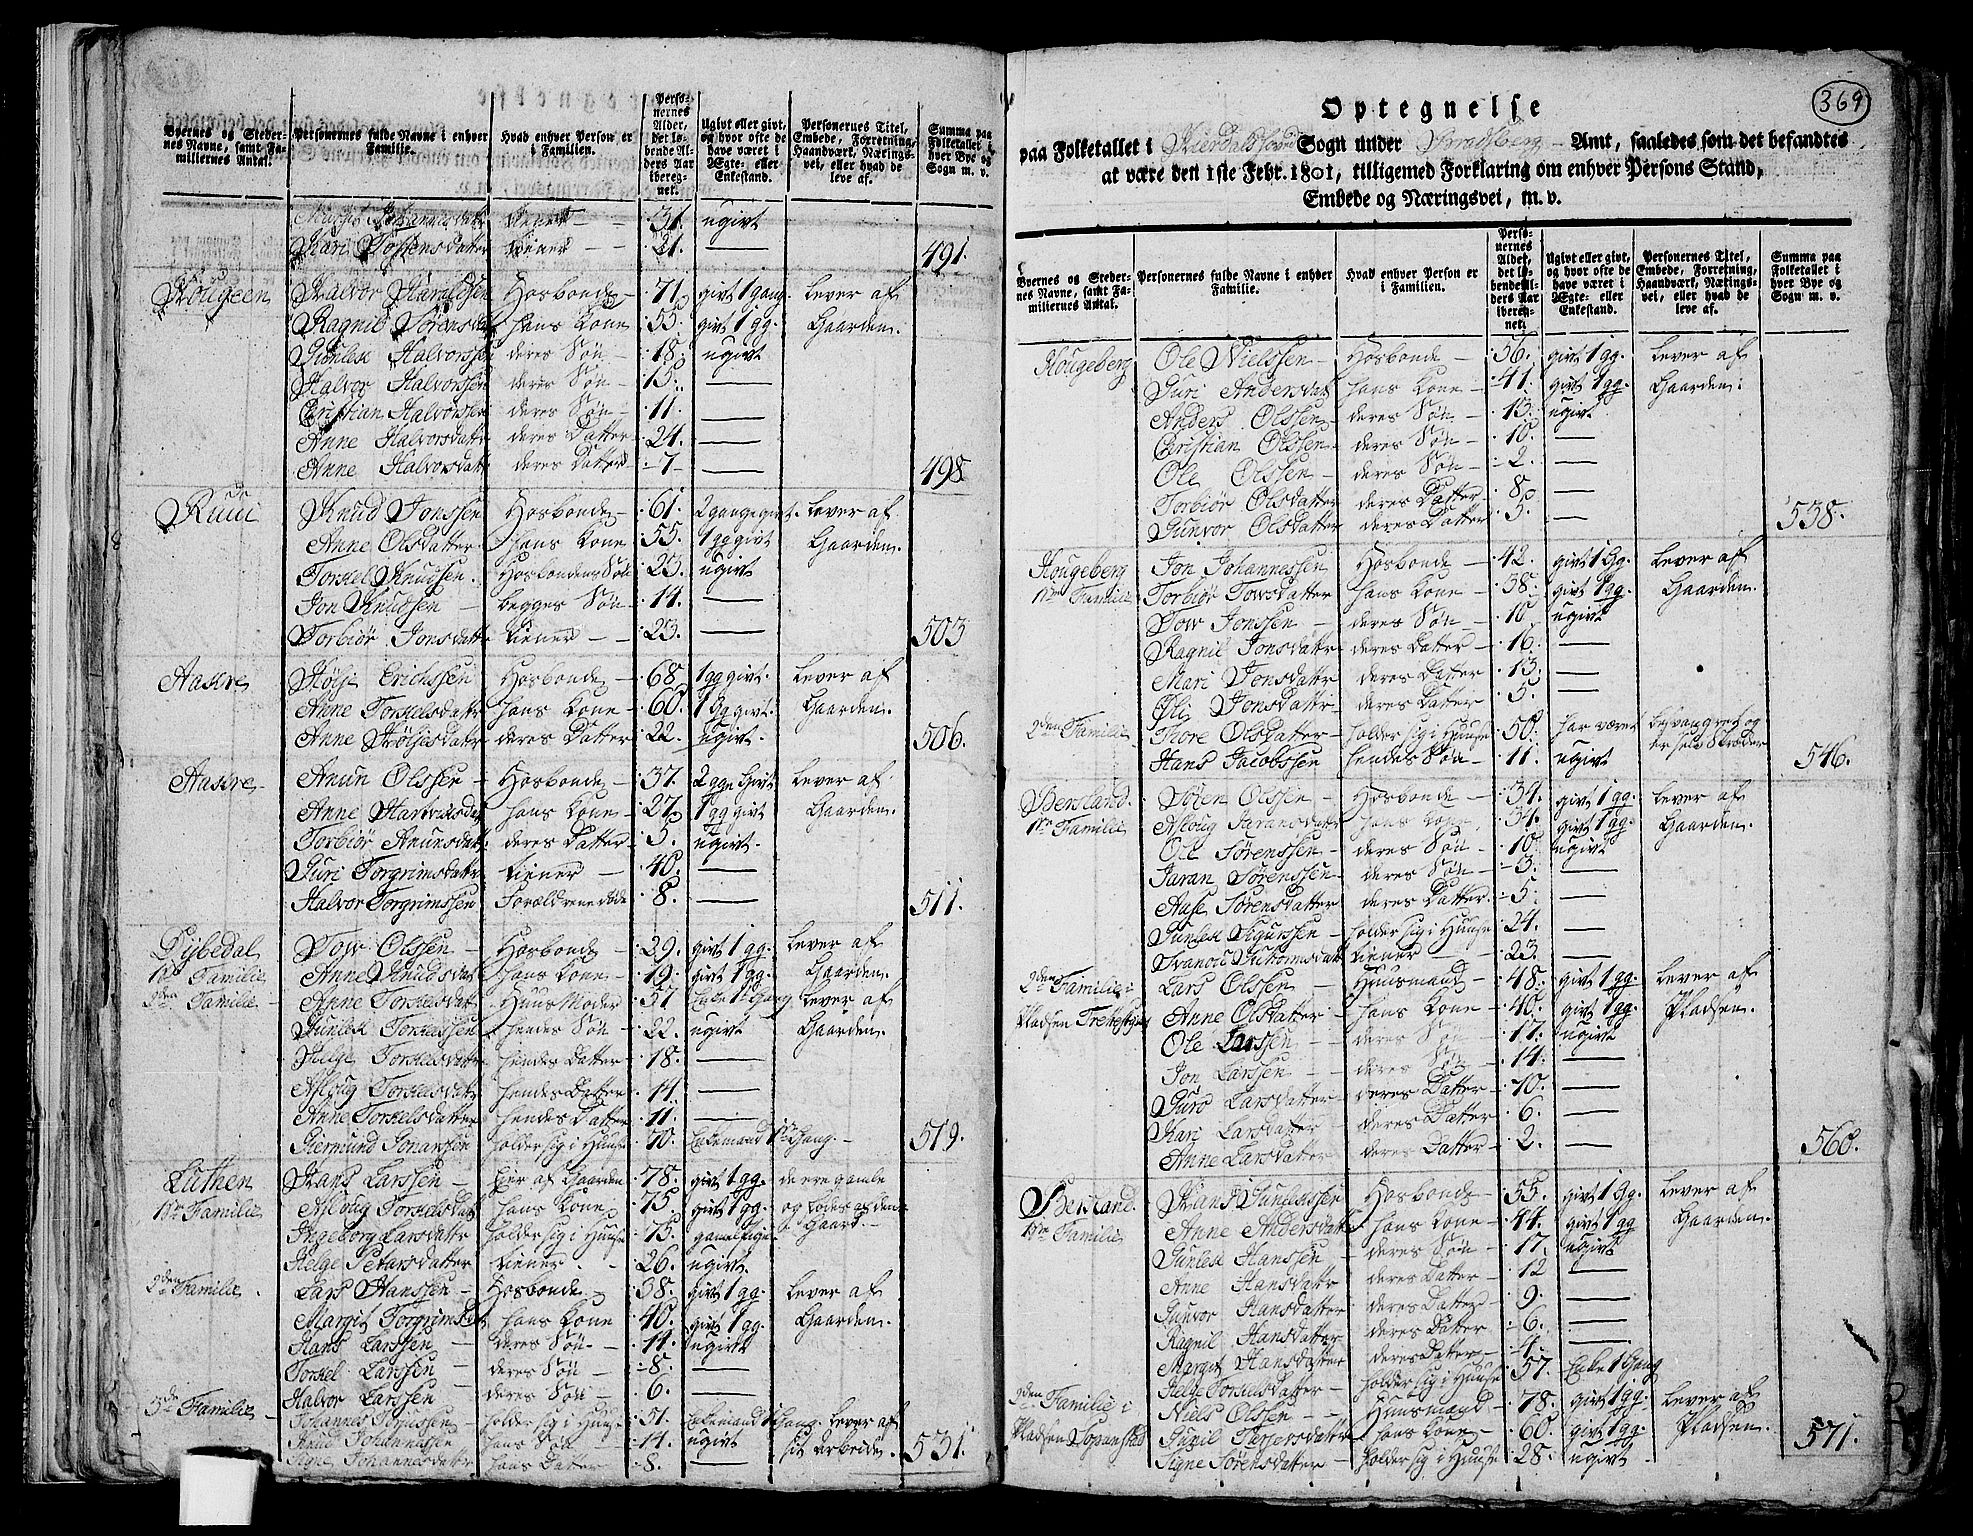 Byernes og Steder-nes Navne, samt Fa-miliernes Antal. | Personernes fulde Navne i enhver Familie. | Hvad enhver Person er i Familien. | Perso-nernes Alder, det lø-bende Al-ders Aar ibereg-net. | Ugivt eller givt, og hvor ofte de have været i Ægte- eller Enkestand. | Personernes Titel, Embede, Forretning, Haandværk, Nærings-vei, eller hvad de leve af. | Summa paa Folketallet i hver Bye og Sogn m. v.
Johannesdatter tiener 31. ugivt
Kari datter tiener 21. — 491.
Hougeen Halvor Haraldsen Hosbonde 71. givt 1 gang. Lever af
Ragnil Sørensda hans Kone 55. givt 1 gg. Gaarden.
Gunlek Halvorssen deres Søn 18. ugivt
Halvor Halvorssen deres Søn 15. —
Christian Halvorssen deres Søn 11. —
Anne Halvorsdattr deres Datter 24. —
Anne Halvorsdattr deres Datter 7 — 498
Ruui Knud Jonssen Hosbonde 61. 2 gange givt. Lever af
Anne Olsdatter hans Kone 55. 1 gg givt Gaarden.
Torkel Knudsen. Hosbondens Søn 23. ugivt
Jon Knudsen begges Søn 14. —
Torbiør Jonsdattr tiener 23. — 503
Aasere Erichssen Hosbonde 68 1 gg givt. Lever af
Anne Torkelsdattr hans Kone 60. 1 gg givt. Gaarden.
Anne datr deres Datter 22. ugivt. 506.
Aasere Anun Olssen Hosbonde 37. 2 gge Givt Lever af
Anne da hans Kone 27. 1 gg givt Gaarden.
Torbiør Anunsdatt deres Datter 5. ugivt.
Guri Torgrimsdattr tiener 40. —
Halvor Torgrimssen Forældrene døde 8. — 511.
Dybedal Tov Olssen Hosbonde 29. givt 1 gg. Lever af
1ste Familie Anne Knudsdat hans Kone 19. givt 1 gg. Gaarden.
Familie Anne Torkelsdatr Huus Moder 57 Enke 1 Gang Lever af
Gunlek Torkelssen hendes Søn 22. ugivt Gaarden.
Helge Torkelsdattr hendes Datter 18. —
Asloug Torkelsdatr hendes Datter 14 —
Anne Torkelsdatter hendes Datter 11. —
holder sig i Huuse 70. Enkemand 1 Gang. 519.
Luthen Hans Larssen eier af Gaarden 78. givt 1 gg. de ere gamle
1ste Familie Asloug Torkelsdat hans Kone 75. givt 1 gg. og
Ingeborg Larsdattr holder sig i Huuse 75. Gaard.
Helge datter tiener 26. ugivt
2den Familie Lars Hanssen Hosbonde 38. givt 1 gg. Lever af
Margit Torgrimsd hans Kone 40. givt 1 gg. Gaarden.
Hans Larssen deres Søn 14. ugivt
Torkel Larssen deres Søn 8. —
Halvor Larssen deres Søn 6. —
Familie Johannes holder sig i Huuse 51. Enkemand 1 Gang Lever af
Knud Johannissen hans Søn 14. ugivt sit arbeide.
Signe Johannesdattr hans Datter 8. — 531.
369
Optegnelse
paa Folketallet i Hierdals Hoved Sogn under Bradsberg Amt, saaledes som det befandtes
at være den 1ste Febr. 1801, tilligemed Forklaring om enhver Persons Stand,
Embede og Næringsvei, m. v.
Byernes og Steder-nes Navne, samt Fa-miliernes Antal. | Personernes fulde Navne i enhver Familie. | Hvad enhver Person er i Familien. | Perso-nernes Alder, det lø-bende Al-ders Aar ibereg-net. | Ugivt eller givt, og hvor ofte de have været i Ægte- eller Enkestand. | Personernes Titel, Embede, Forretning, Haandværk, Nærings-vei, eller hvad de leve af. | Summa paa Folketallet i hver Bye og Sogn m. v.
Hougeberg Ole Nielssen Hosbonde 56. givt 1 gg. Lever af
Guri Andersdat hans Kone 41. givt 1 gg. Gaarden.
Anders Olssen deres Søn 13. ugivt
Christian Olssen deres Søn 10. —
Ole Olssen deres Søn 2. —
Torbiør Olsdatter deres Datter 8. —
Gunvor Olsdatter deres Datter 5. — 538.
Hougeberg Jon Johannessen Hosbonde 42. givt 1 Gg. Lever af
1ste Familie Torbiør Tovsdatter hans Kone 38. givt 1 gg. Gaarden.
Tov Jonssen deres Søn 10 ugivt
Ragnil Jonsdattr deres Datter 16. —
Mari Jonsdattr deres Datter 13. —
Jonsdattr deres Datter 5. —
2den Familie Thore Olsdatter holder sig i Huuse 50. har været besvangret og
Hans Jacobssen hendes Søn 11. ugivt er selv Skræder 546.
Søren Olssen Hosbonde 34. givt 1 gg. Lever af
1ste Familie Aslaug hans Kone 31. givt 1 gg. Gaarden.
Ole Sørenssen deres Søn 10. ugivt
Sørenssen deres Søn 3. —
Aase Sørensdatter deres Datter 5. —
Gunlek holder sig i Huuse 24. —
tiener 23. —
2den Familie Lars Olssen Huusmand 48. givt 1 gg. Lever af
Pladsen Anne Olsdatter hans Kone 40. givt 1 gg. Pladsen.
Ole Larssen deres Søn 17. ugivt
Jon Larssen deres Søn 14. —
Guro Larsdatter deres Datter 10. —
Kari Larsdatter deres Datter 6. —
Anne Larsdatter deres Datter 2. — 560.
Hans Gunlekssen Hosbonde 55. givt 1 Gg. Lever af
1ste Familie Anne Andersdatt hans Kone 44. givt 1 gg Gaarden.
Gunlek Hanssen deres Søn 17. ugivt
Anne Hansdattr deres Datter 12 —
Gunvor Hansdatter deres Datter 9. —
Ragnil Hansdatter deres Datter 6. —
Margit Hansdatter deres Datter 4. —
Helge datter holder sig i Huuse 57. Enke 1 Gang
2den Familie Niels Olssen Huusmand 78. givt 1 gg. Lever af
Pladsen datter hans Kone 60. givt 1 gg. Pladsen
Signe Sørensdatter holder sig i Huuse 28. ugivt 571.